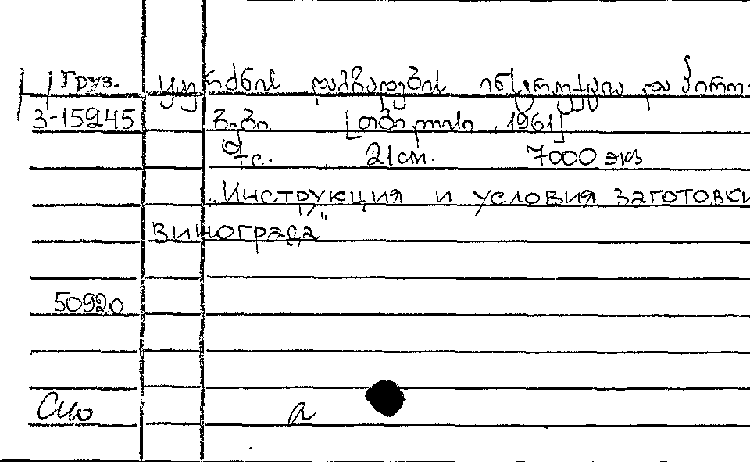 Груз. ყურძნის დამზადების ინსტრუქცია და პირო-
3-15245 გ.გ. [თბილისი, 1961]
тс. 21см. 7000 экз
„Инструкция и условия заготовки
винограда"
50920
а